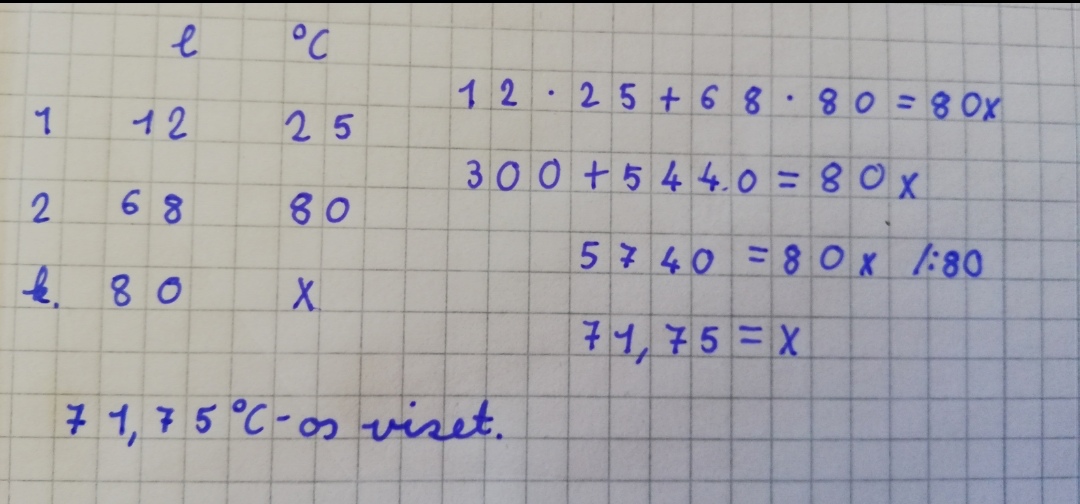 l °C
1 12 25
2 68 80
k. 80 x
12 · 25 + 68 · 80 = 80x
300 + 5440 = 80x
5740 = 80x /:80
71,75 = x
71,75°C-os vizet.